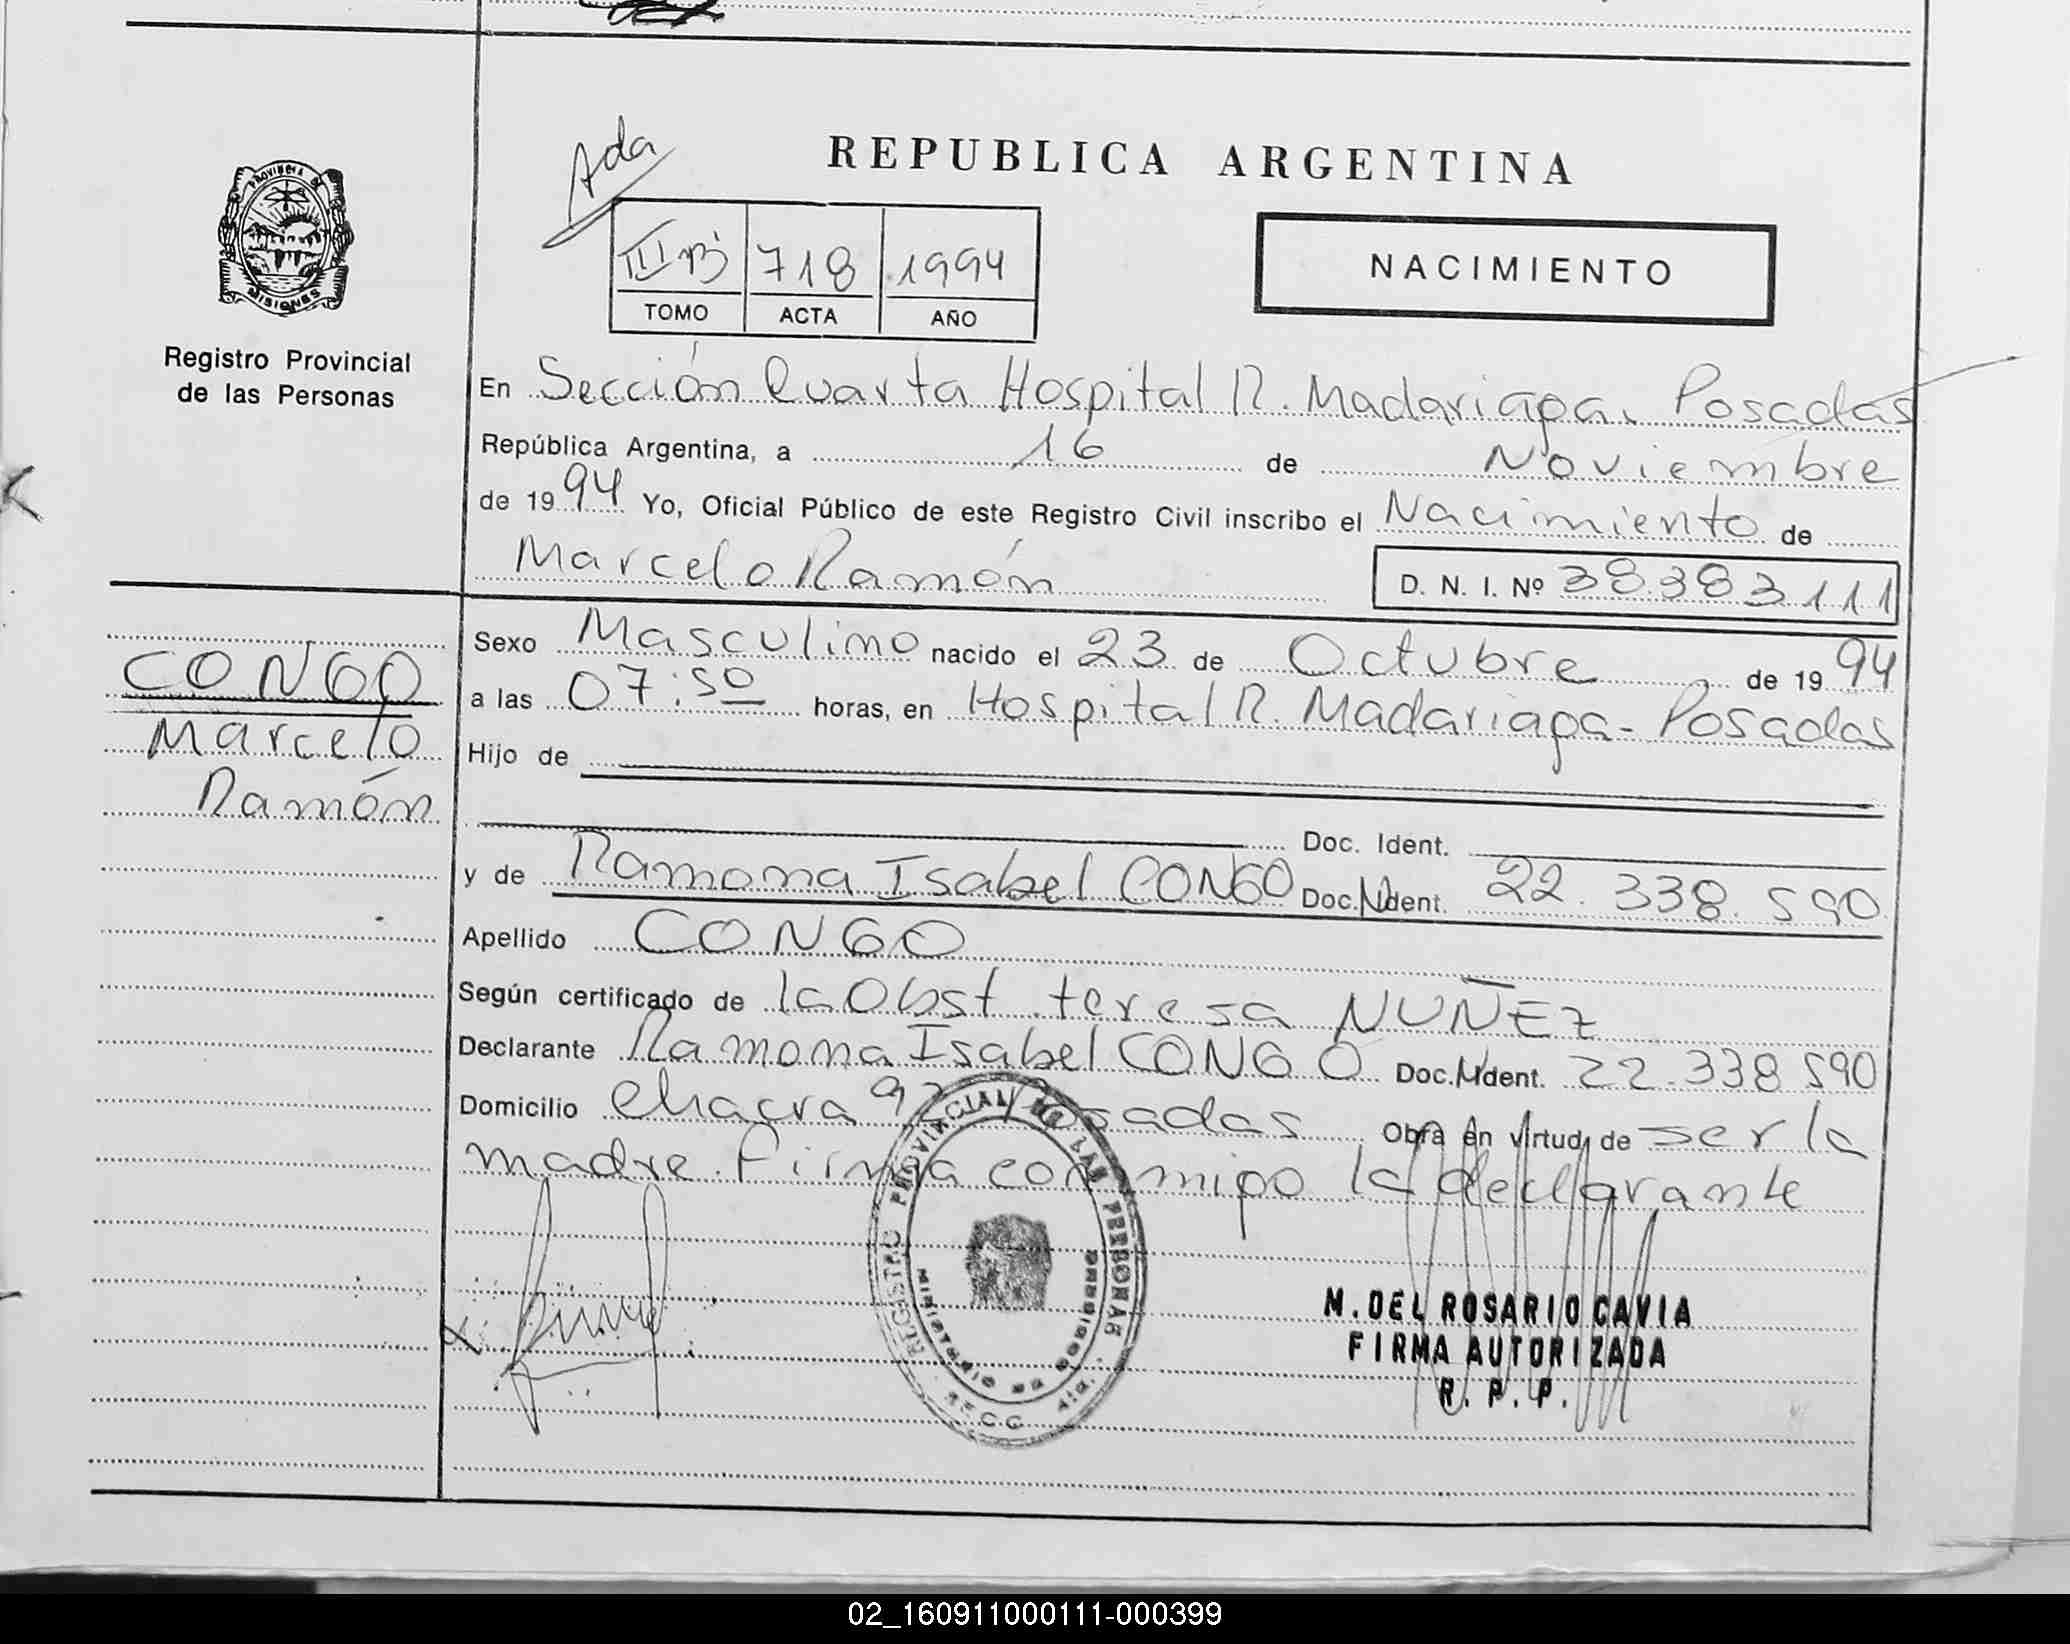 Ada
REPUBLICA ARGENTINA
PROVINCIA DE
MISIONES
III B 718 1994
TOMO ACTA AÑO
NACIMIENTO
Registro Provincial
de las Personas
En Sección Cuarta Hospital R. Madariaga. Posadas
República Argentina, a 16 de Noviembre
de 1994 Yo, Oficial Público de este Registro Civil inscribo el Nacimiento de
Marcelo Ramón D. N. I. Nº 38.383.111
CONGO
Marcelo
Ramón
Sexo Masculino nacido el 23 de Octubre de 1994
a las 07:50 horas, en Hospital R. Madariaga - Posadas
Hijo de
Doc. Ident.
y de Ramona Isabel CONGO Doc. Ident. 22.338.590
Apellido CONGO
Según certificado de la Obst. teresa NUÑEZ
Declarante Ramona Isabel CONGO Doc. Ident. 22.338.590
Domicilio chacra Posadas Obra en virtud de ser la
madre. Firma conmigo la declarante
REGISTRO PROVINCIAL DE LAS PERSONAS
MINISTERIO DE GOBIERNO
M. DEL ROSARIO CAVIA
FIRMA AUTORIZADA
R. P. P.
02_160911000111-000399